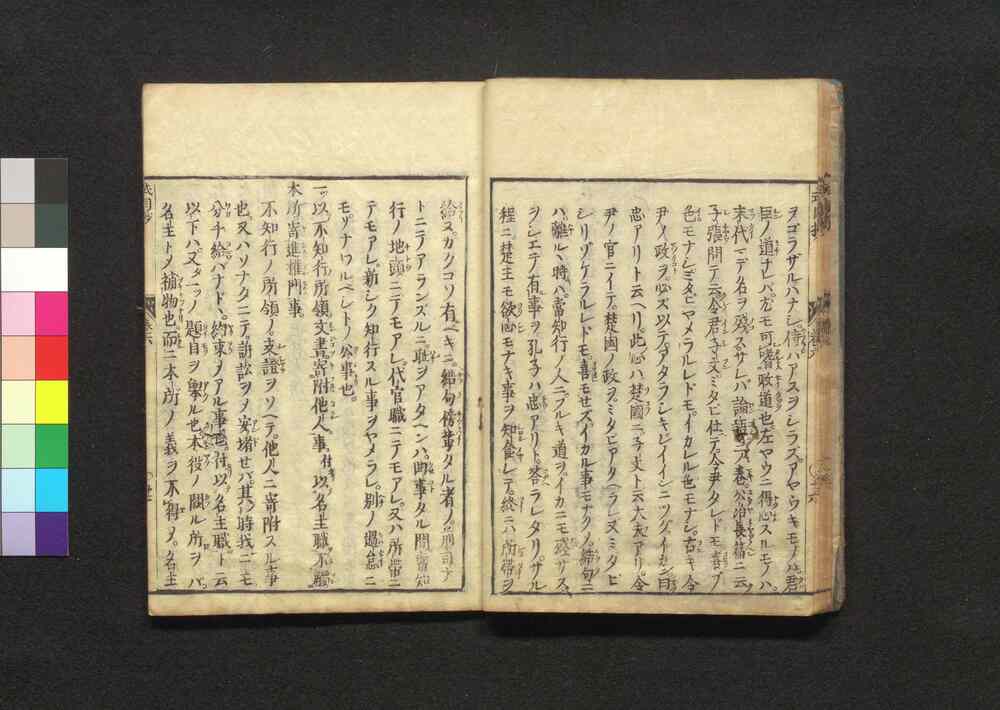 ヲゴラザルハナシ。侍ハアスヲシラズ。アヤウキモノハ君
臣ノ道ナレバ。尤モ可嗜政道也。左ヤウニ得心スルモノハ。
末代マデ名ヲ殘ス。サレバ論語 巻公冶長篇ニ云
子張問テ云。令尹子文ミタビ仕テ。令尹タレドモ喜ブ
色モナシ。ミタビヤメラルレドモ。イカレル色モナシ。古キ令
尹ノ政ヲ必ズ以テ。アタラシキレイインニツグイカン。曰
忠アリト云ヘリ。此心ハ楚國ニ子文ト云大夫アリ。令
尹ノ官ニイテ。楚國ノ政ヲミタビアタヘラレ。又ミタビ
シリゾケラルレドモ。喜モセズ。イカル事モナク。
ハ離ルヽ時ハ。當知行ノ人ニフルキ道ヲイカニモ殘サズ。
ヲシエテノ有事ヲ。孔子ハ忠アリト。答ラレタリ。サル
程ニ楚王モ欲心モナキ事ヲ知食レテ。終ニハ所帶ヲ
給ヌ。カクコソ有ベキニ。結句傍輩タル者ノ。
トニテアランズルニ。耻ヲアタヘンハ。曲事タル間。當知
行ノ地頭ニテモアレ。代官職ニテモアレ。又ハ所帶ニ
テモアレ。新シク知行スル事ヲヤメラレ。別ノ過怠ニ
モヲナワルベシトノ公事也。
一 以不知行所領文書寄附他人事。付以名主職不觸
本所寄進權門事
不知行ノ所領ノ。支證ヲソヘテ。他人ニ寄附スル事
也。又ハソナタニテ。訴訟ヲメ安堵セバ。其時我ニモ
分ケ給ヘナド。約束ノアル事也。付以名主職ト云
以下ハ。又一ツノ題目ヲ擧ル也。本役ノ闕ル所ヲバ。
名主トメ補物也。而ニ本所ノ義ヲ不得メ。名主